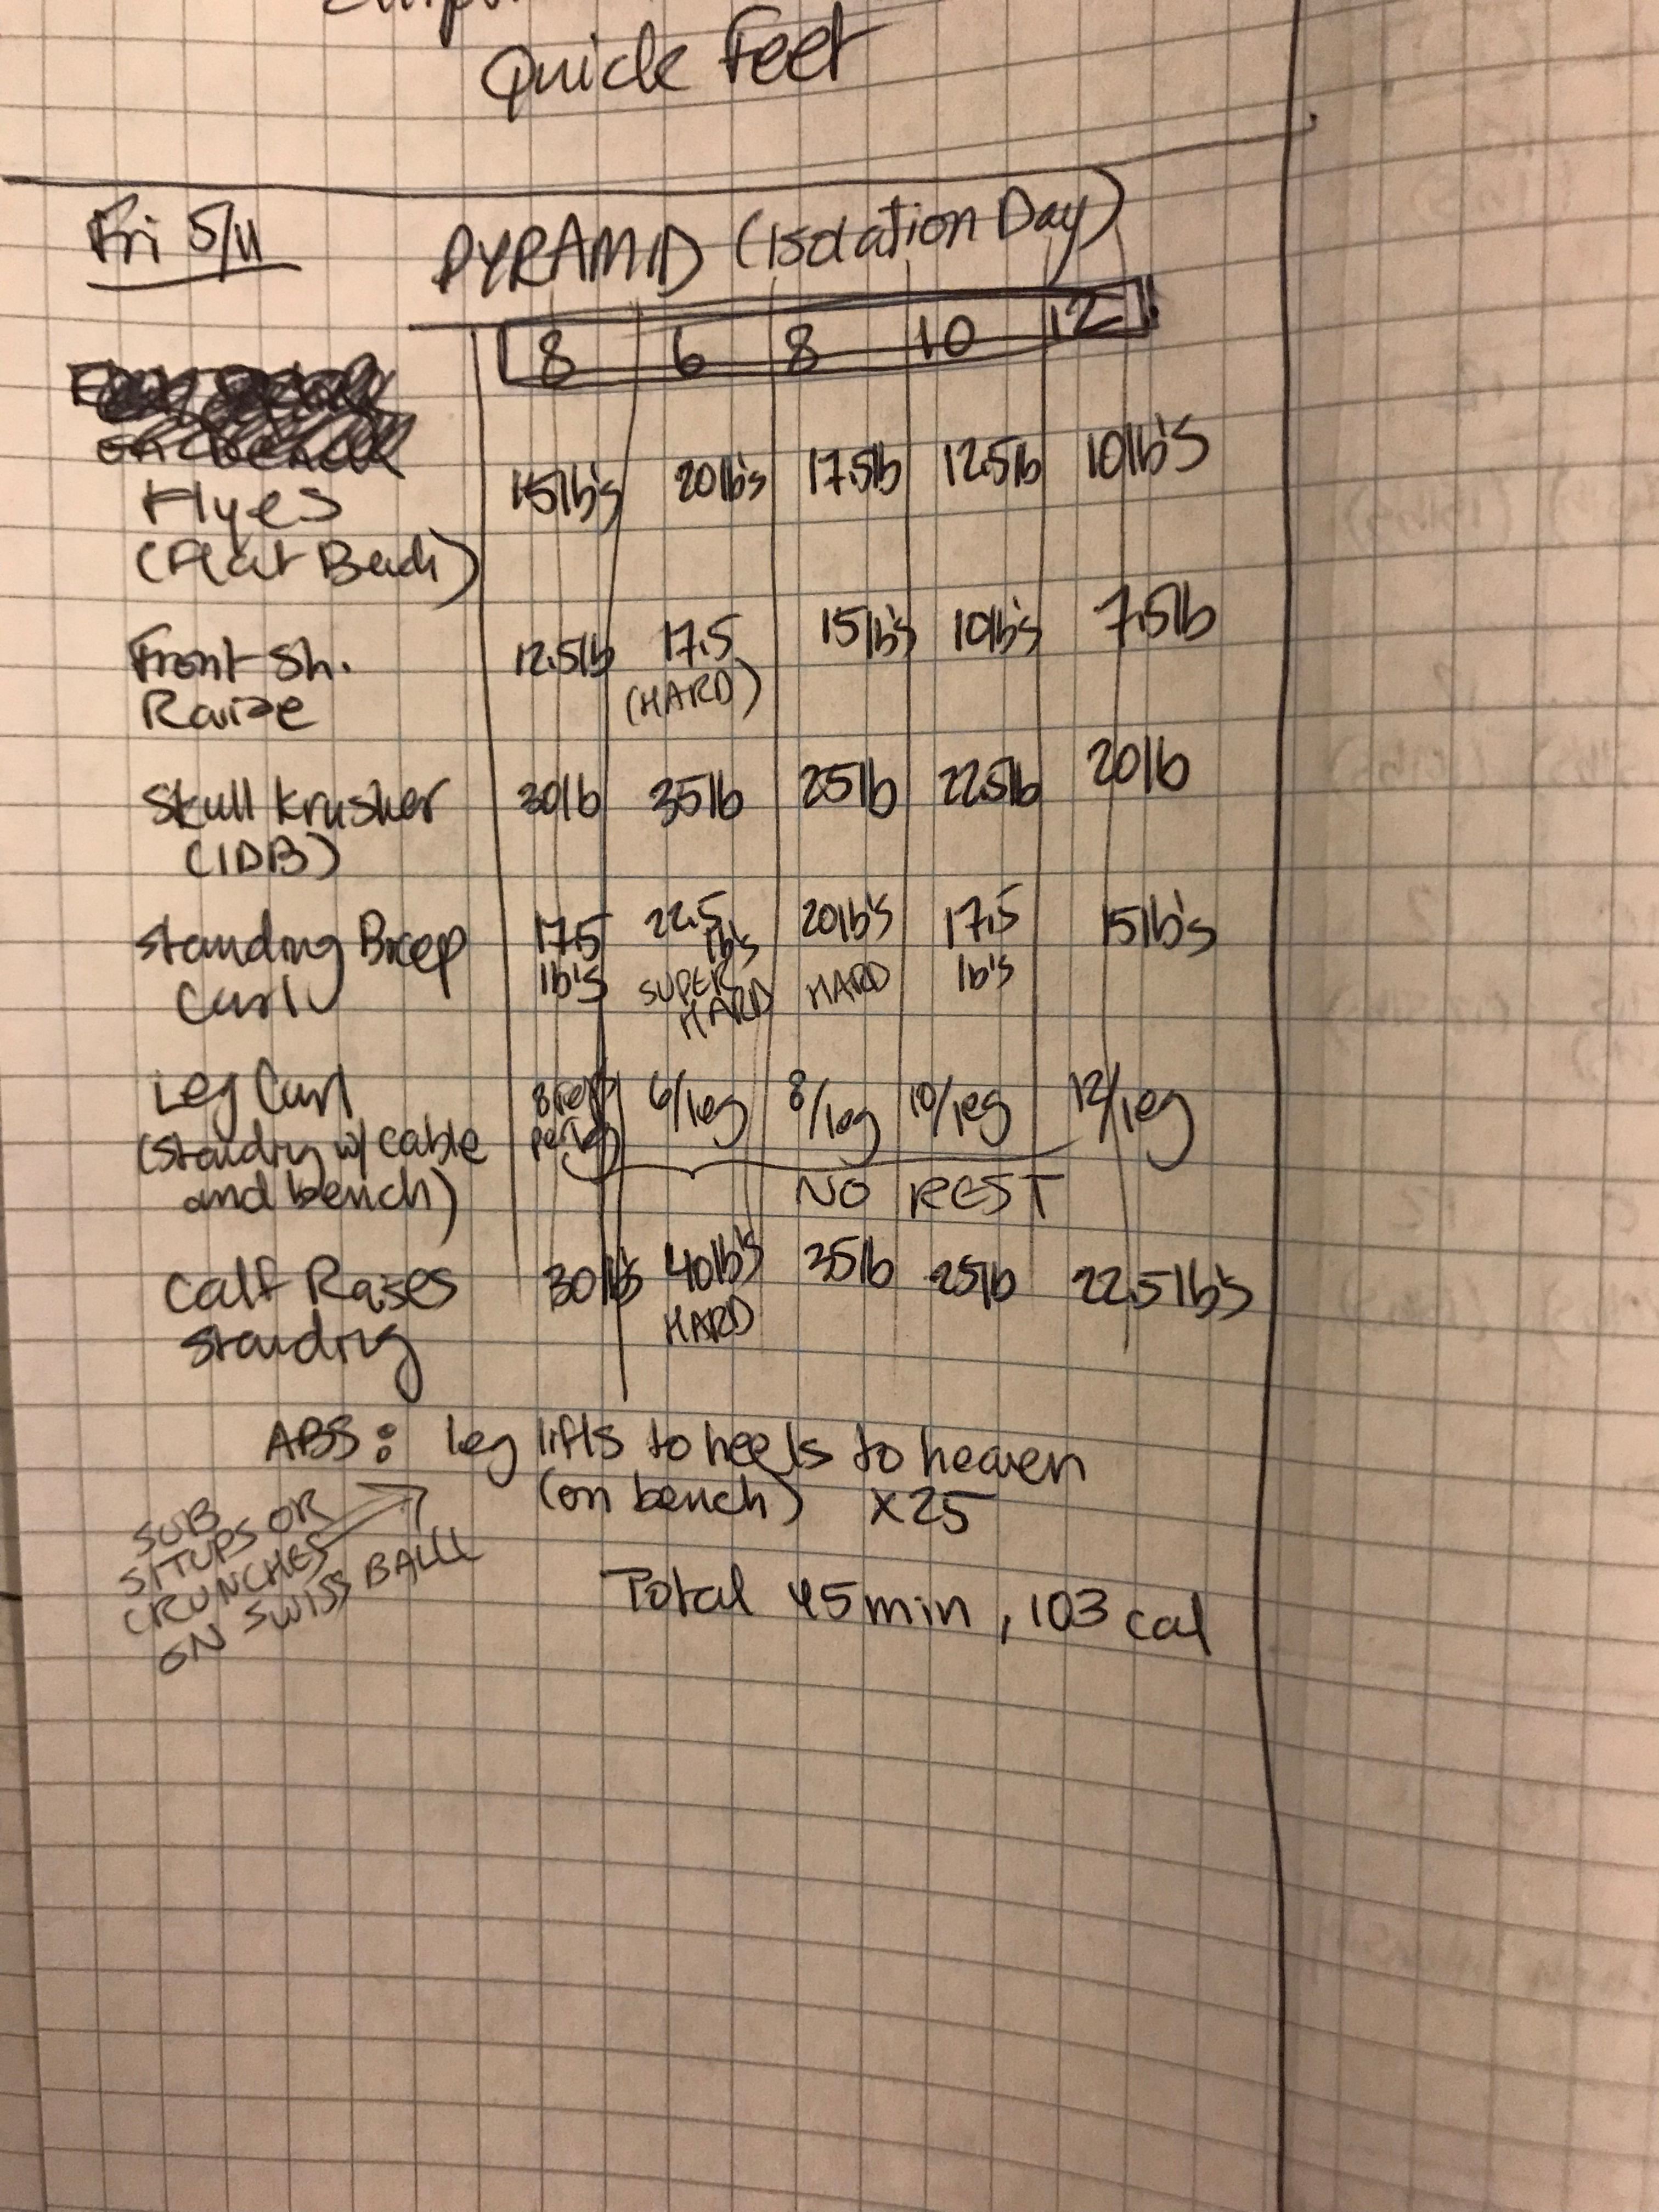 Quick Feet
Fri 5/11
PYRAMID (Isolation Day)
8 6 8 10 12
Flyes 15lb's 20lb's 17.5lb 12.5lb 10lb's
(Flat Bech)
Front Sh. 12.5lb 17.5 15lb's 10lb's 7.5lb
Raise (HARD)
Skull Krusher 30lb 35lb 25lb 22.5lb 20lb
(1DB)
Standing Bicep 17.5 22.5 20lb's 17.5 15lb's
Curl lb's lb's HARD lb's
SUPER
HARD
Leg Curl 8 reps 6/leg 8/leg 10/leg 12/leg
(standing w/ cable per leg
and bench) NO REST
Calf Raises 30lb's 40lb's 35lb 25lb 22.5lb's
standing HARD
ABS: leg lifts to heels to heaven
(on bench) x25
SUB
SITUPS OR
CRUNCHES
ON SWISS BALL
Total 45min, 103 cal